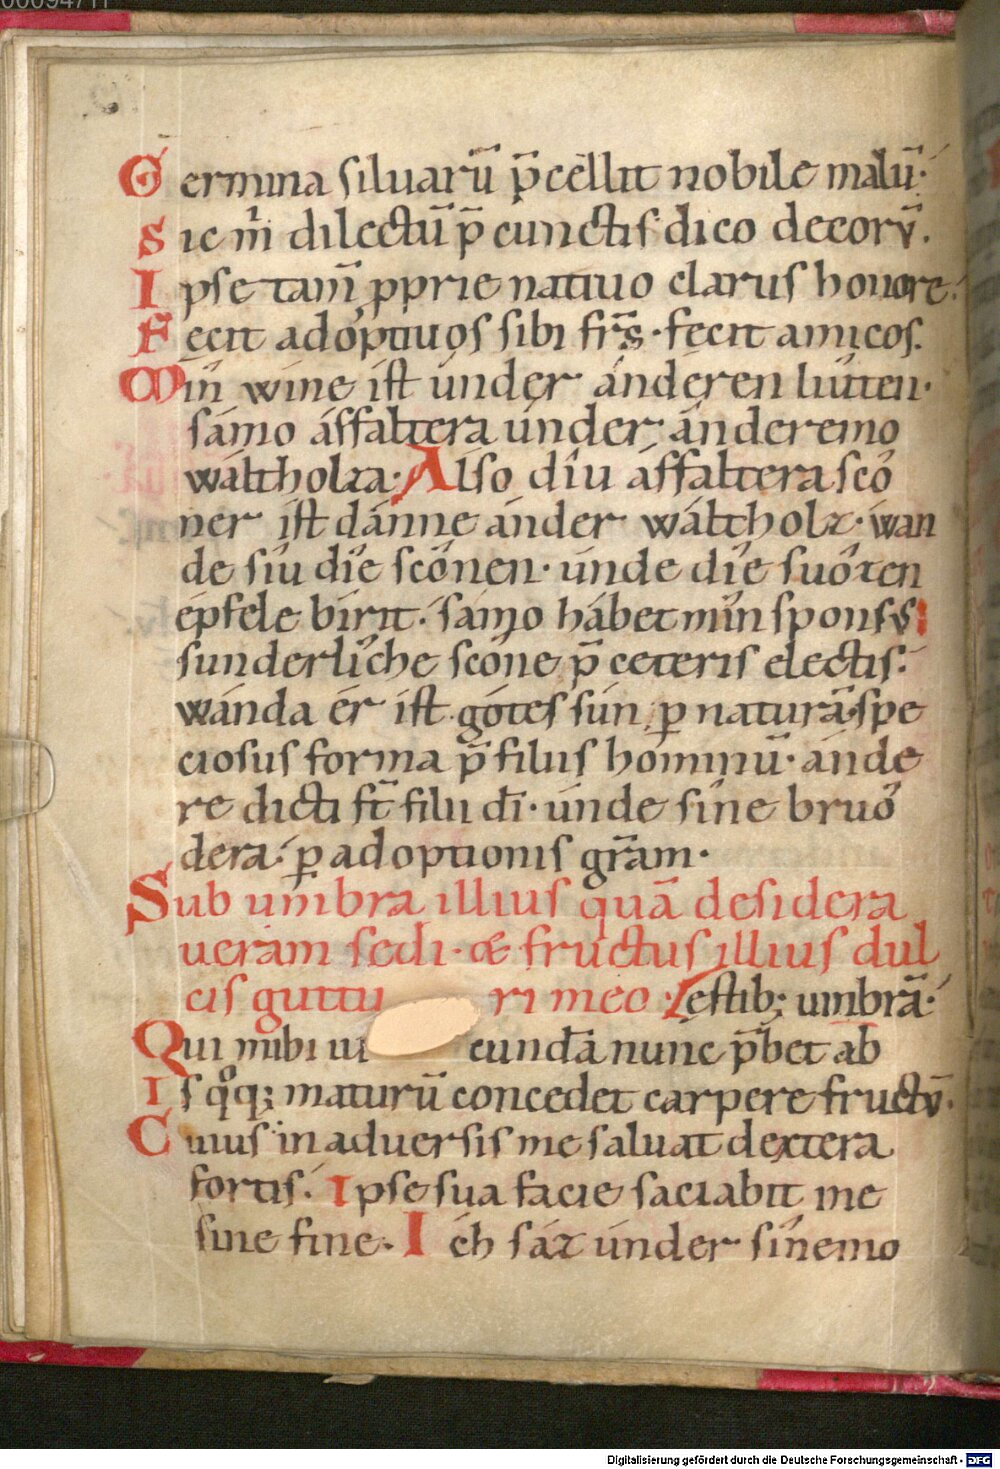 00094711
Germina siluarū p̄cellit nobile malū·
Sic m̄ dilectū p̄ cunctis dico decorū̄.
Ipse tam̄ ꝓprie natiuo clarus honore.
Fecit adoptiuos sibi fr̄s·fecit amicos.
Mín wíne ist únder ánderen líuten·
sámo áffaltera únder ánderemo
wáltholza· Also díu áffaltera scó
ner ist dánne ánder wáltholz·wan
de síu díe scónen·únde díe suózen
épfele bírit·sámo hábet mín sponsus
sunderlíche scóne p̄ ceteris electis·
wánda ér ist gótes sún ꝑ naturā·spe
ciosus forma p̄ filiis hominū·ánde
re dicti st̄ filii dī·únde síne bruó
dera·ꝑ adoptionis gr̄am·
Sub umbra illius quā desidera
ueram sedi·& fructus illius dul
cis guttu ri meo·
Qui mihi iu cundā nunc p̄bet ab ęstib; umbrā·
Is qͦq; maturū concedet carpere fructū̄·
Cuius in aduersis me saluat dextera
fortis. Ipse sua facie saciabit me
sine fine. Ich sáz únder sínemo
Digitalisierung gefördert durch die Deutsche Forschungsgemeinschaft - DFG